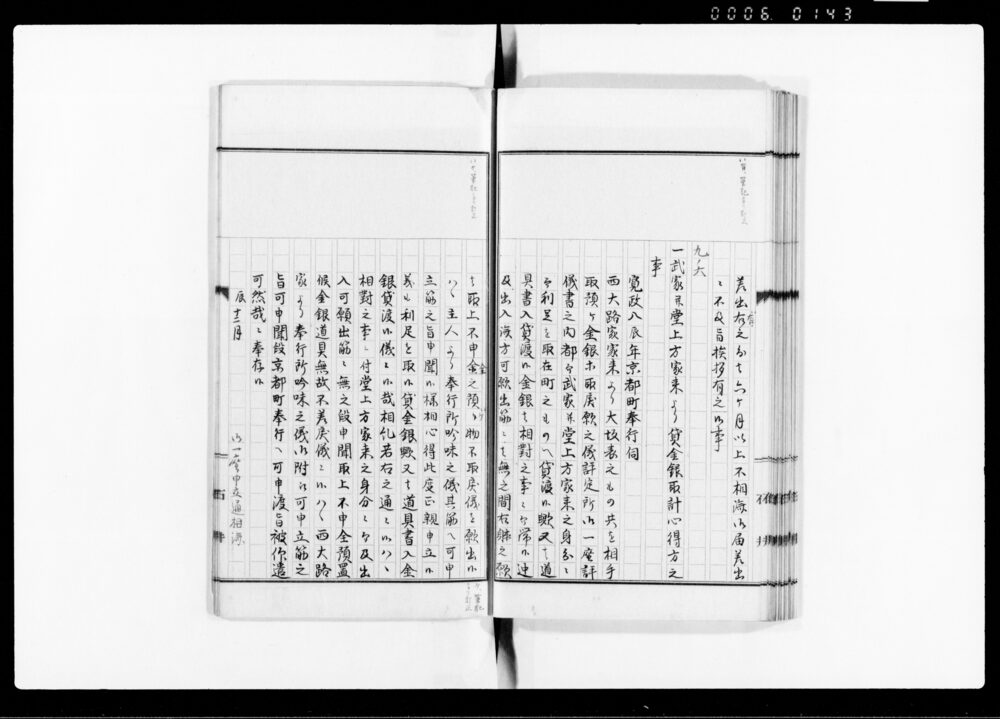 0006 0143
差出有之分者六ヶ月以上不相海候届差出
ニ不及旨挨拶有之候事
九ノ六
一武家并堂上方家来ゟ貸金銀取計心得方之
事
寛政八辰年京都町奉行伺
西大路家家来ゟ大坂表之もの共を相手
取預ヶ金銀等取戻願之儀評定所御一座評
儀書之内都而武家并堂上方家来之身分ニ
而利足を取在町之もの江貸渡候歟又者道
具書入貸渡候金銀者相対之事ニ而常ニ
及出入済方可願出筋ニ者無之間右躰之願
者取上不申全之預ヶ物不取戻儀を願出候
ハヽ主人ゟ奉行所吟味之儀其筋江可申
立筋之旨申聞候様相心得此度正親申立候
義も利足を取候貸金銀歟又者道具書入金
銀貸渡候儀ニ候哉相糺若右之通ニ候ハヽ
相対之事ニ付堂上方家来之身分ニ而及出
入可願出筋ニ無之段申聞取上不申全預置
候金銀道具無故不差戻儀ニ候ハヽ西大路
家ゟ奉行所吟味之儀御附江可申立筋之
旨可申聞段京都町奉行江可申渡旨被仰遣
可然哉ニ奉存候
辰十二月
御一座申立通相済